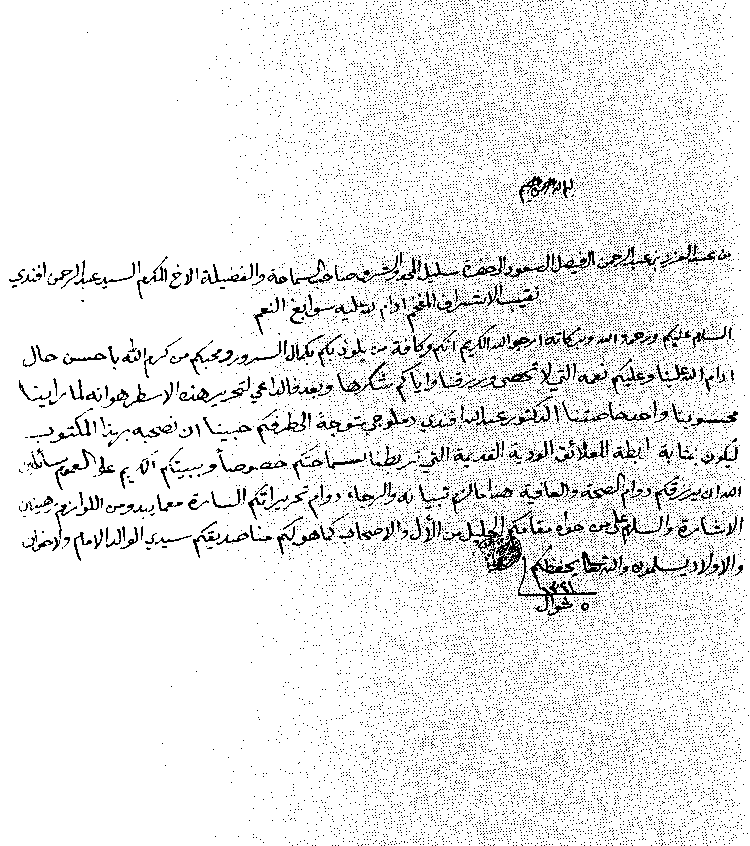 بسم الله الرحمن الرحيم
من عبد العزيز بن عبد الرحمن الفيصل السعود الى حضرة سليل المجد والشرف صاحب السماحة والفضيلة الاخ المكرم السيد عبد الرحمن افندي
نقيب الاشراف المفخم ادام الله عليه سوابغ النعم
السلام عليكم ورحمة الله وبركاته ارجو الله الكريم انكم وكافة من يلوذ بكم بكمال السرور ومحبكم من كرم الله باحسن حال
ادام الله علينا وعليكم نعمه التي لا تحصى ورزقنا واياكم شكرها وبعد فالداعي لتحرير هذه الاسطر هو انه لما راينا
محسوبنا واحد خاصتنا الدكتور عبد الله افندي دملوجي يتوجه الى طرفكم حبينا ان نصحبه بهذا المكتوب
ليكون بمثابة رابطة العلائق الودية القديمة التي تربطنا بسماحتكم خصوصاً وببيتكم الكريم على العموم سائلين
الله ان يرزقكم دوام الصحة والعافية هذا مالزم تبيانه والرجاء دوام تحريراتكم السارة مع ما يبدو من اللوازم رهينين
الاشارة والسلام على من حواه مقامكم الجليل من الآل والاصحاب كما هو لكم منا صديقكم سيدي الوالد الامام والاخوان
والاولاد يسلمون والله تعالى يحفظكم
١٣٣١
٥ شوال